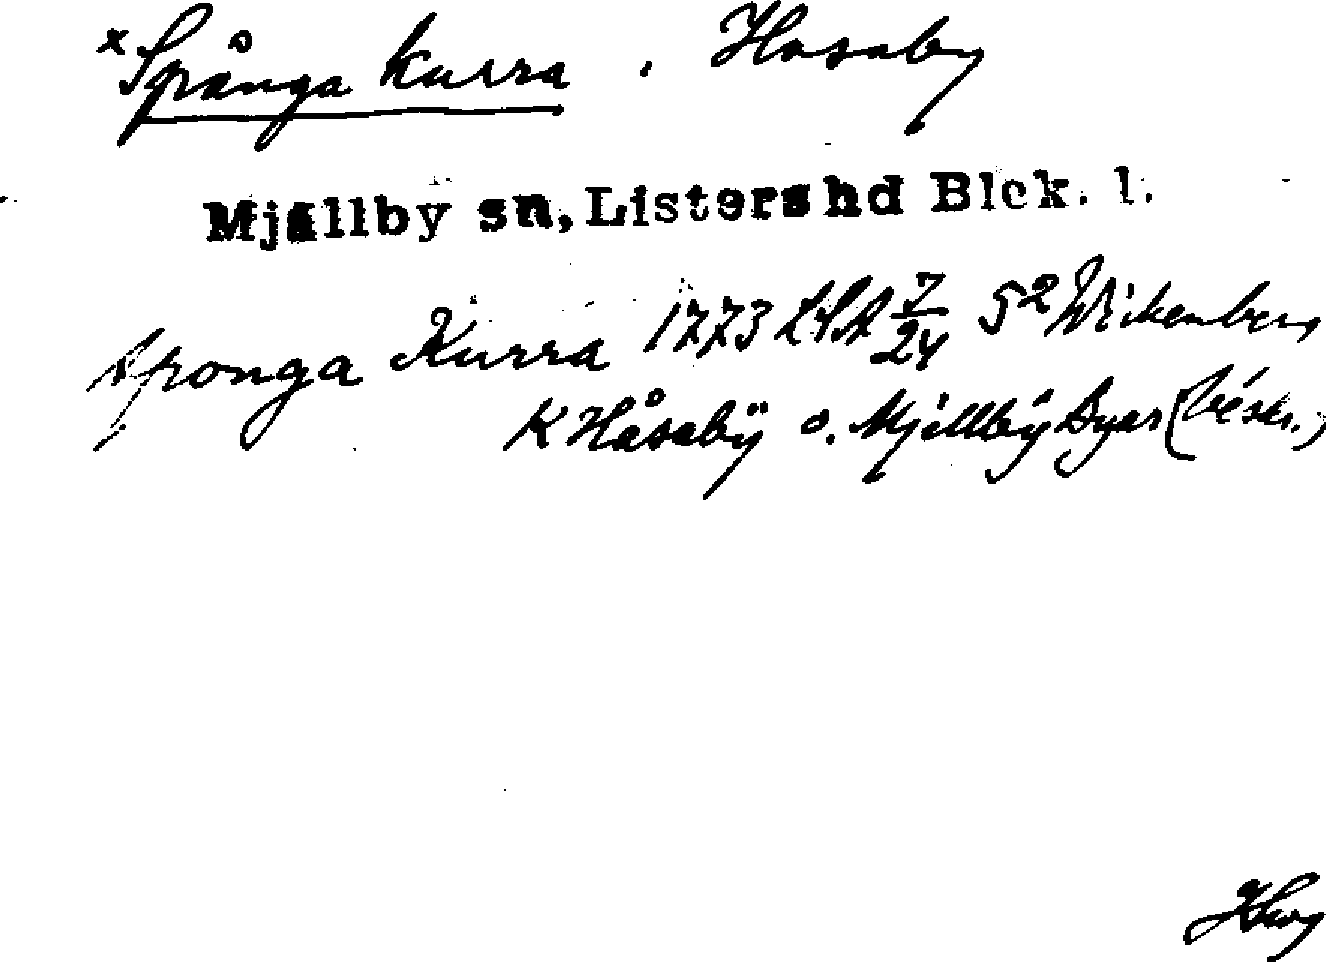 *Spånga kurra. Hosaby
Mjällby sn, Listers hd Blek. l.
sponga Kurra 1773 LSA 7/24 S² Wikenberg
K Håsabÿ o. Mjellbÿ Byar (beskr.)